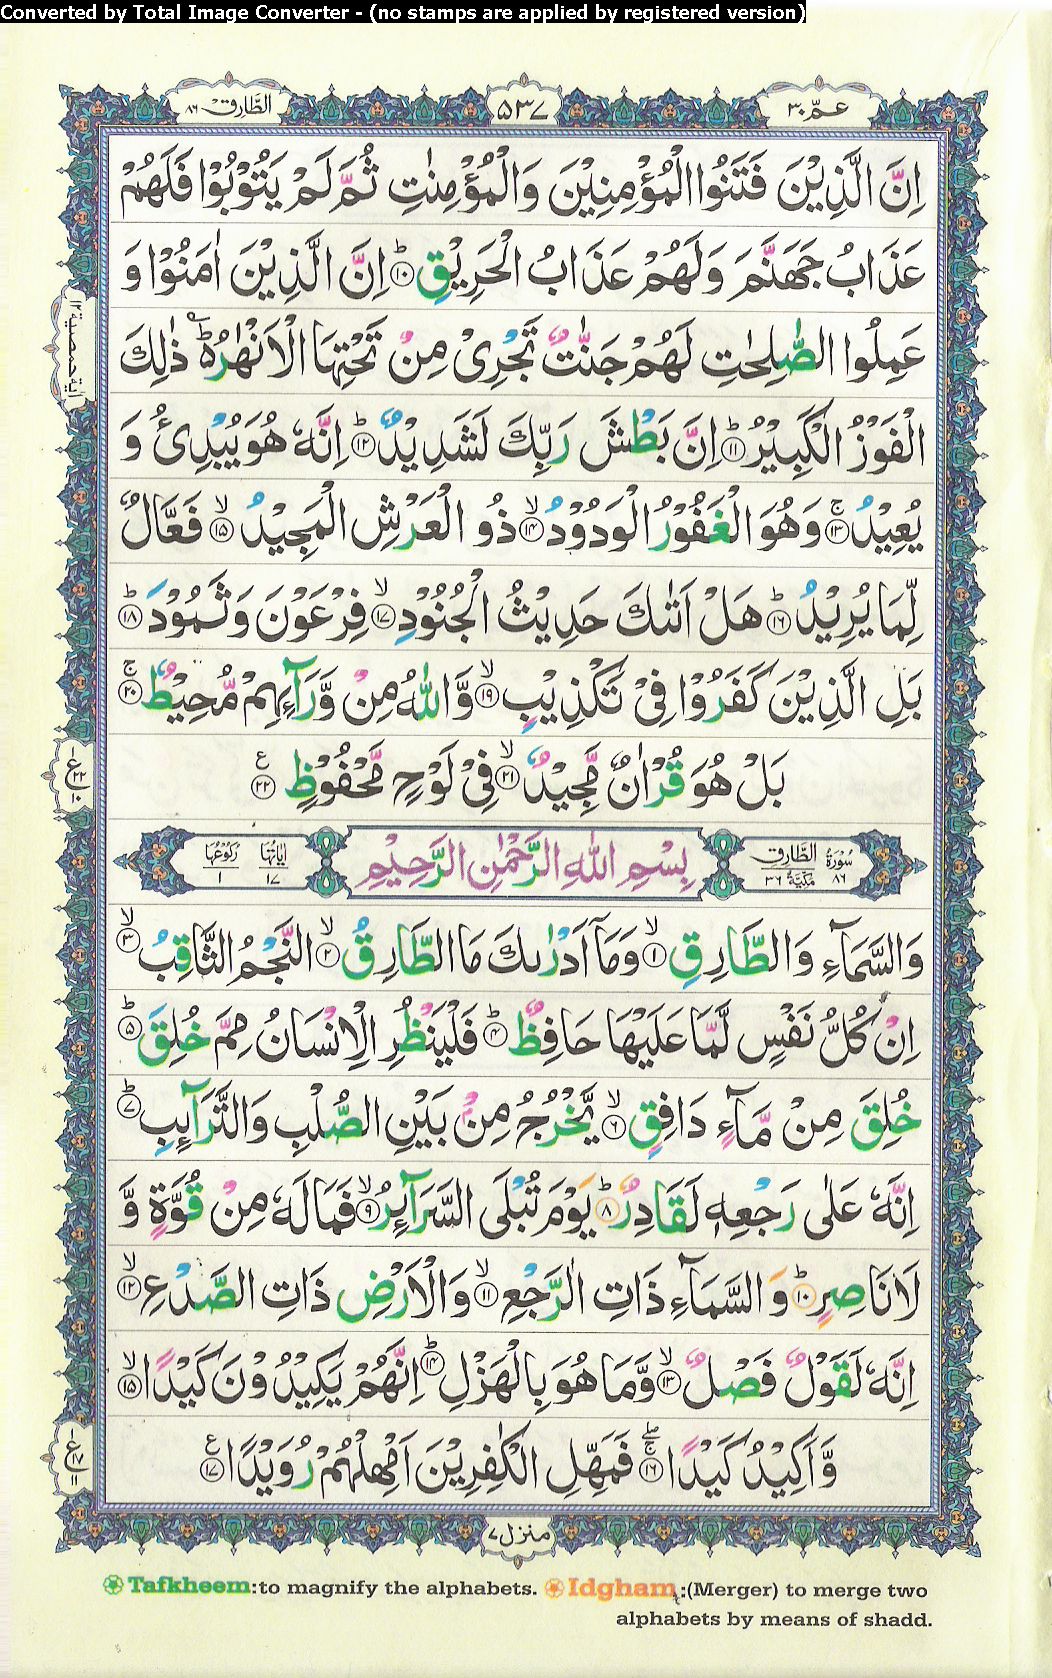 Converted by Total Image Converter - (no stamps are applied by registered version)
عمّ ۳۰
۵۳۷
الطَّارِق ۸۶
اِنَّ الَّذِيْنَ فَتَنُوا الْمُؤْمِنِيْنَ وَالْمُؤْمِنٰتِ ثُمَّ لَمْ يَتُوْبُوْا فَلَهُمْ
عَذَابُ جَهَنَّمَ وَلَهُمْ عَذَابُ الْحَرِيْقِ ؕ۱۰ اِنَّ الَّذِيْنَ اٰمَنُوْا وَ
عَمِلُوا الصّٰلِحٰتِ لَهُمْ جَنّٰتٌ تَجْرِىْ مِنْ تَحْتِهَا الْاَنْهٰرُ ؕ ذٰلِكَ
الْفَوْزُ الْكَبِيْرُ ؕ۱۱ اِنَّ بَطْشَ رَبِّكَ لَشَدِيْدٌ ؕ۱۲ اِنَّهٗ هُوَ يُبْدِئُ وَ
يُعِيْدُ ۚ۱۳ وَهُوَ الْغَفُوْرُ الْوَدُوْدُ ۙ۱۴ ذُو الْعَرْشِ الْمَجِيْدُ ۙ۱۵ فَعَّالٌ
لِّمَا يُرِيْدُ ؕ۱۶ هَلْ اَتٰىكَ حَدِيْثُ الْجُنُوْدِ ۙ۱۷ فِرْعَوْنَ وَثَمُوْدَ ؕ۱۸
بَلِ الَّذِيْنَ كَفَرُوْا فِىْ تَكْذِيْبٍ ۙ۱۹ وَّاللّٰهُ مِنْ وَّرَآئِهِمْ مُّحِيْطٌ ۚ۲۰
بَلْ هُوَ قُرْاٰنٌ مَّجِيْدٌ ۙ۲۱ فِىْ لَوْحٍ مَّحْفُوْظٍ ۲۲ ع
سُوْرَةُ ۸۶ الطَّارِق مَكِّيَّةٌ ۳۶
بِسْمِ اللّٰهِ الرَّحْمٰنِ الرَّحِيْمِ
اٰيَاتُهَا ۱۷ رُكُوْعُهَا ۱
وَالسَّمَآءِ وَالطَّارِقِ ۙ۱ وَمَآ اَدْرٰىكَ مَا الطَّارِقُ ۙ۲ النَّجْمُ الثَّاقِبُ ۙ۳
اِنْ كُلُّ نَفْسٍ لَّمَّا عَلَيْهَا حَافِظٌ ؕ۴ فَلْيَنْظُرِ الْاِنْسَانُ مِمَّ خُلِقَ ؕ۵
خُلِقَ مِنْ مَّآءٍ دَافِقٍ ۙ۶ يَّخْرُجُ مِنْ بَيْنِ الصُّلْبِ وَالتَّرَآئِبِ ؕ۷
اِنَّهٗ عَلٰى رَجْعِهٖ لَقَادِرٌ ؕ۸ يَوْمَ تُبْلَى السَّرَآئِرُ ۙ۹ فَمَا لَهٗ مِنْ قُوَّةٍ وَّ
لَا نَاصِرٍ ؕ۱۰ وَالسَّمَآءِ ذَاتِ الرَّجْعِ ۙ۱۱ وَالْاَرْضِ ذَاتِ الصَّدْعِ ۙ۱۲
اِنَّهٗ لَقَوْلٌ فَصْلٌ ۙ۱۳ وَّمَا هُوَ بِالْهَزْلِ ؕ۱۴ اِنَّهُمْ يَكِيْدُوْنَ كَيْدًا ۙ۱۵
وَّاَكِيْدُ كَيْدًا ۚ۱۶ فَمَهِّلِ الْكٰفِرِيْنَ اَمْهِلْهُمْ رُوَيْدًا ۱۷ ع
منزل ۷
Tafkheem:to magnify the alphabets. Idgham:(Merger) to merge two
alphabets by means of shadd.